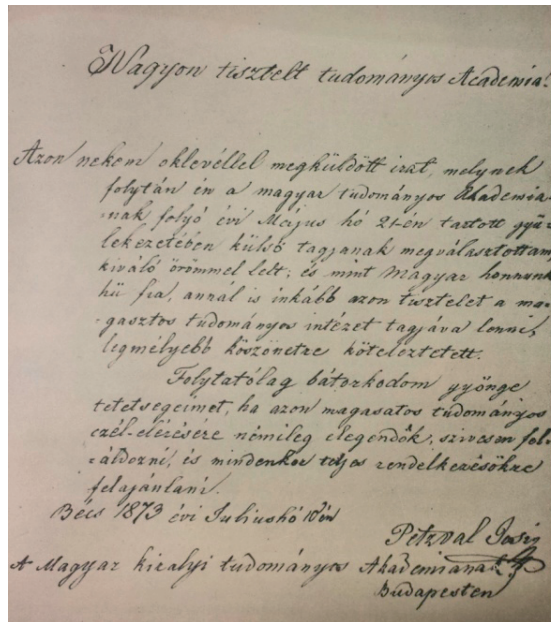 Nagyon tisztelt tudományos Academia!
Azon nekem oklevéllel megküldött irat, melynek
folytán én a magyar tudományos Akademia-
nak folyó évi Május hó 21-én tartott gyü-
lekezetében külső tagjanak megválasztottam,
kiváló örömmel lelt; és mint Magyar honnunk
hü fia, annál is inkább azon tisztelet a ma-
-gasztos tudományos intézet tagjáva lenni,
legmélyebb köszönetre köteleztetett.
Folytatólag bátorkodom gyönge
tetetségeimet, ha azon magasatos tudományos
czél-elérésére némileg elegendők, szivesen fel-
-áldozni, és mindenkor teljes rendelkezésökre
felajánlani.
Bécs 1873 évi Juliushó 10én
Petzval
A Magyar kiralyi tudományos Akademianak
Budapesten